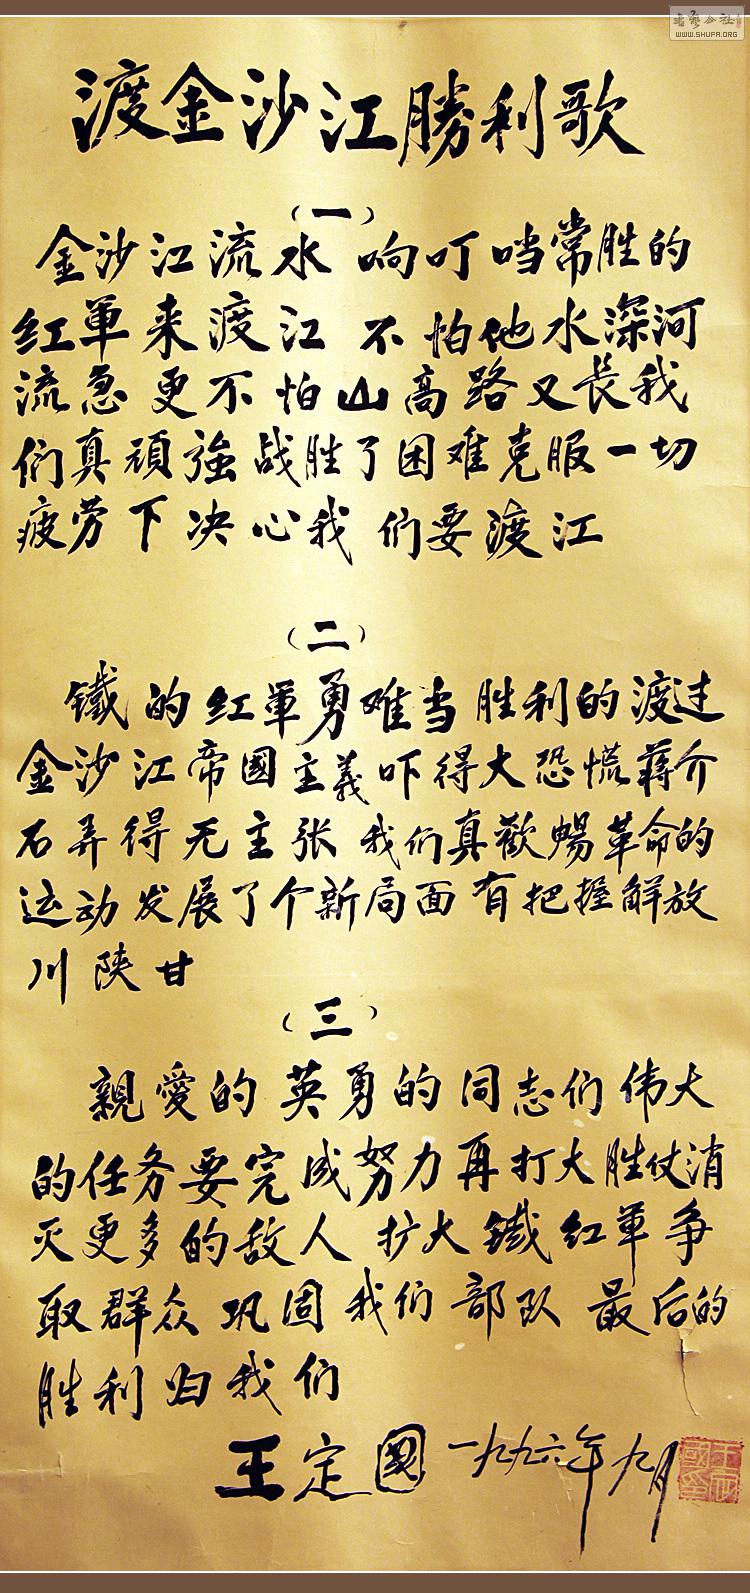 渡金沙江勝利歌
（一）
金沙江流水 响叮当常胜的
红軍来渡江 不怕他水深河
流急 更不怕山高路又長我
们真頑強战胜了困难克服一切
疲劳下决心我们要渡江
（二）
鐵的红軍勇难当胜利的渡过
金沙江帝國主義吓得大恐慌蔣介
石弄得无主张我们真歡暢革命的
运动发展了个新局面有把握解放
川陕甘
（三）
親愛的英勇的同志们伟大
的任务要完成努力再打大胜仗消
灭更多的敌人扩大鐵红軍争
取群众巩固我们部队最后的
胜利归我们
王定國 一九九六年九月
WWW.SHUFA.ORG